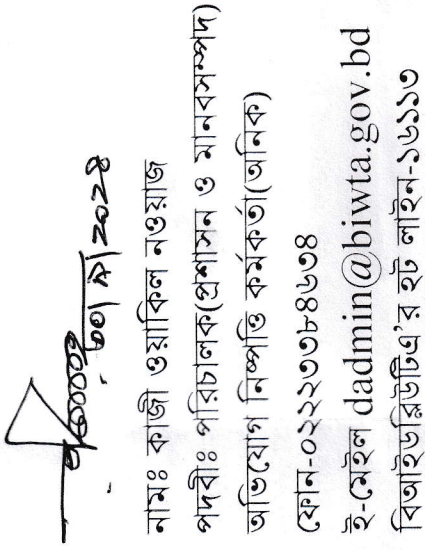 নামঃ কাজী ওয়াকিল নওয়াজ
পদবীঃ পরিচালক(প্রশাসন ও মানবসম্পদ)
অভিযোগ নিষ্পত্তি কর্মকর্তা(অনিক)
ফোন-০২২২৩৩৮৪৬৩৪
ই-মেইল dadmin@biwta.gov.bd
বিআইডব্লিউটিএ'র হট লাইন-১৬১১৩